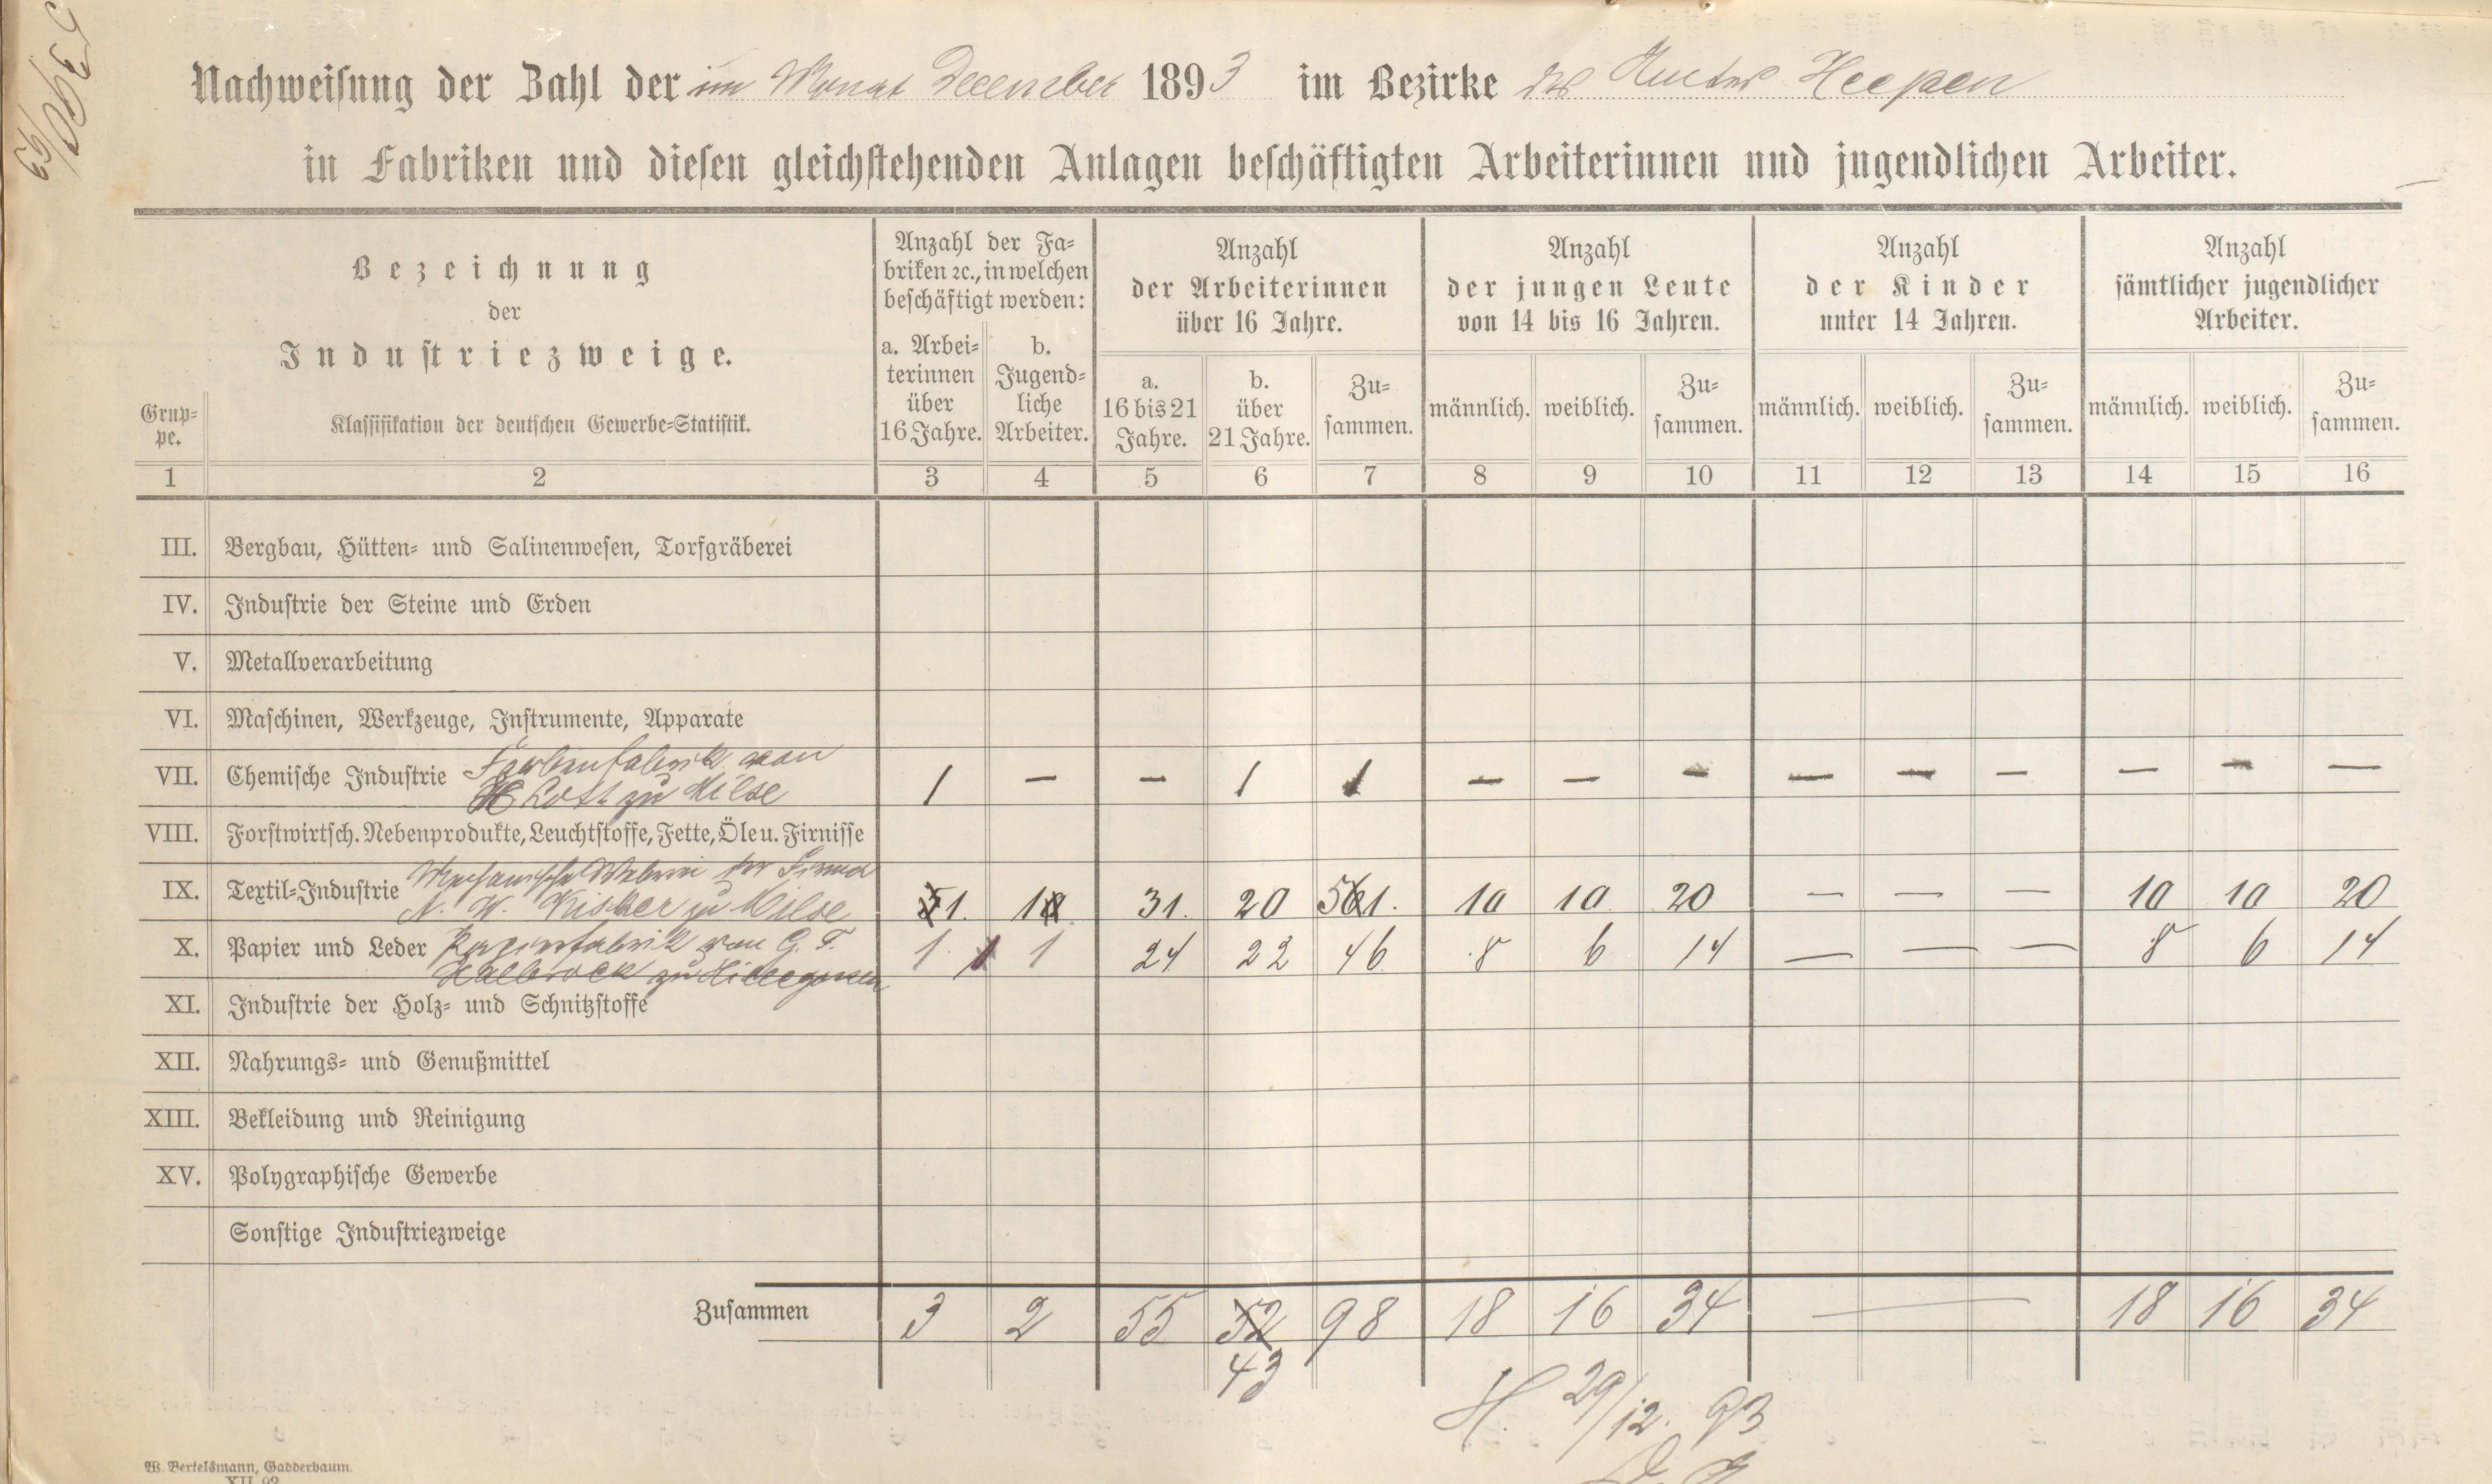 Nachweiſung der Zahl der im Monat December 1893 im Bezirke des Amtes Heepen
in Fabriken und dieſen gleichſtehenden Anlagen beſchäftigten Arbeiterinnen und jugendlichen Arbeiter.
Grup-
pe.
Bezeichnung
der
Induſtriezweige.
Klaſſifikation der deutſchen Gewerbe-Statiſtik.
Anzahl der Fa-
briken ꝛc., in welchen
beſchäftigt werden:
a. Arbei-
terinnen
über
16 Jahre.
b.
Jugend-
liche
Arbeiter.
Anzahl
der Arbeiterinnen
über 16 Jahre.
a.
16 bis 21
Jahre.
b.
über
21 Jahre.
Zu-
ſammen.
Anzahl
der jungen Leute
von 14 bis 16 Jahren.
männlich. weiblich. Zu-
ſammen.
Anzahl
der Kinder
unter 14 Jahren.
männlich. weiblich. Zu-
ſammen.
Anzahl
ſämtlicher jugendlicher
Arbeiter.
männlich. weiblich. Zu-
ſammen.
1 2 3 4 5 6 7 8 9 10 11 12 13 14 15 16
III. Bergbau, Hütten- und Salinenweſen, Torfgräberei
IV. Induſtrie der Steine und Erden
V. Metallverarbeitung
VI. Maſchinen, Werkzeuge, Inſtrumente, Apparate
VII. Chemiſche Induſtrie Farbenfabrik von
zu Milse 1 – – 1 1 – – – – – – – – –
VIII. Forſtwirtſch. Nebenprodukte, Leuchtſtoffe, Fette, Öle u. Firniſſe
IX. Textil-Induſtrie Mechanische Weberei der Firma
Kisker zu Milse 1. 1 31. 20 51. 10 10 20 – – – 10 10 20
X. Papier und Leder Papierfabrik von G. F.
Halbrock zu Hillegossen 1 1 24 22 46 8 6 14 – – – 8 6 14
XI. Induſtrie der Holz- und Schnitzſtoffe
XII. Nahrungs- und Genußmittel
XIII. Bekleidung und Reinigung
XV. Polygraphiſche Gewerbe
Sonſtige Induſtriezweige
Zuſammen 3 2 55 52 98 18 16 34 — 18 16 34
43
H. 29/12. 93
W. Bertelsmann, Gadderbaum.
XII. 92